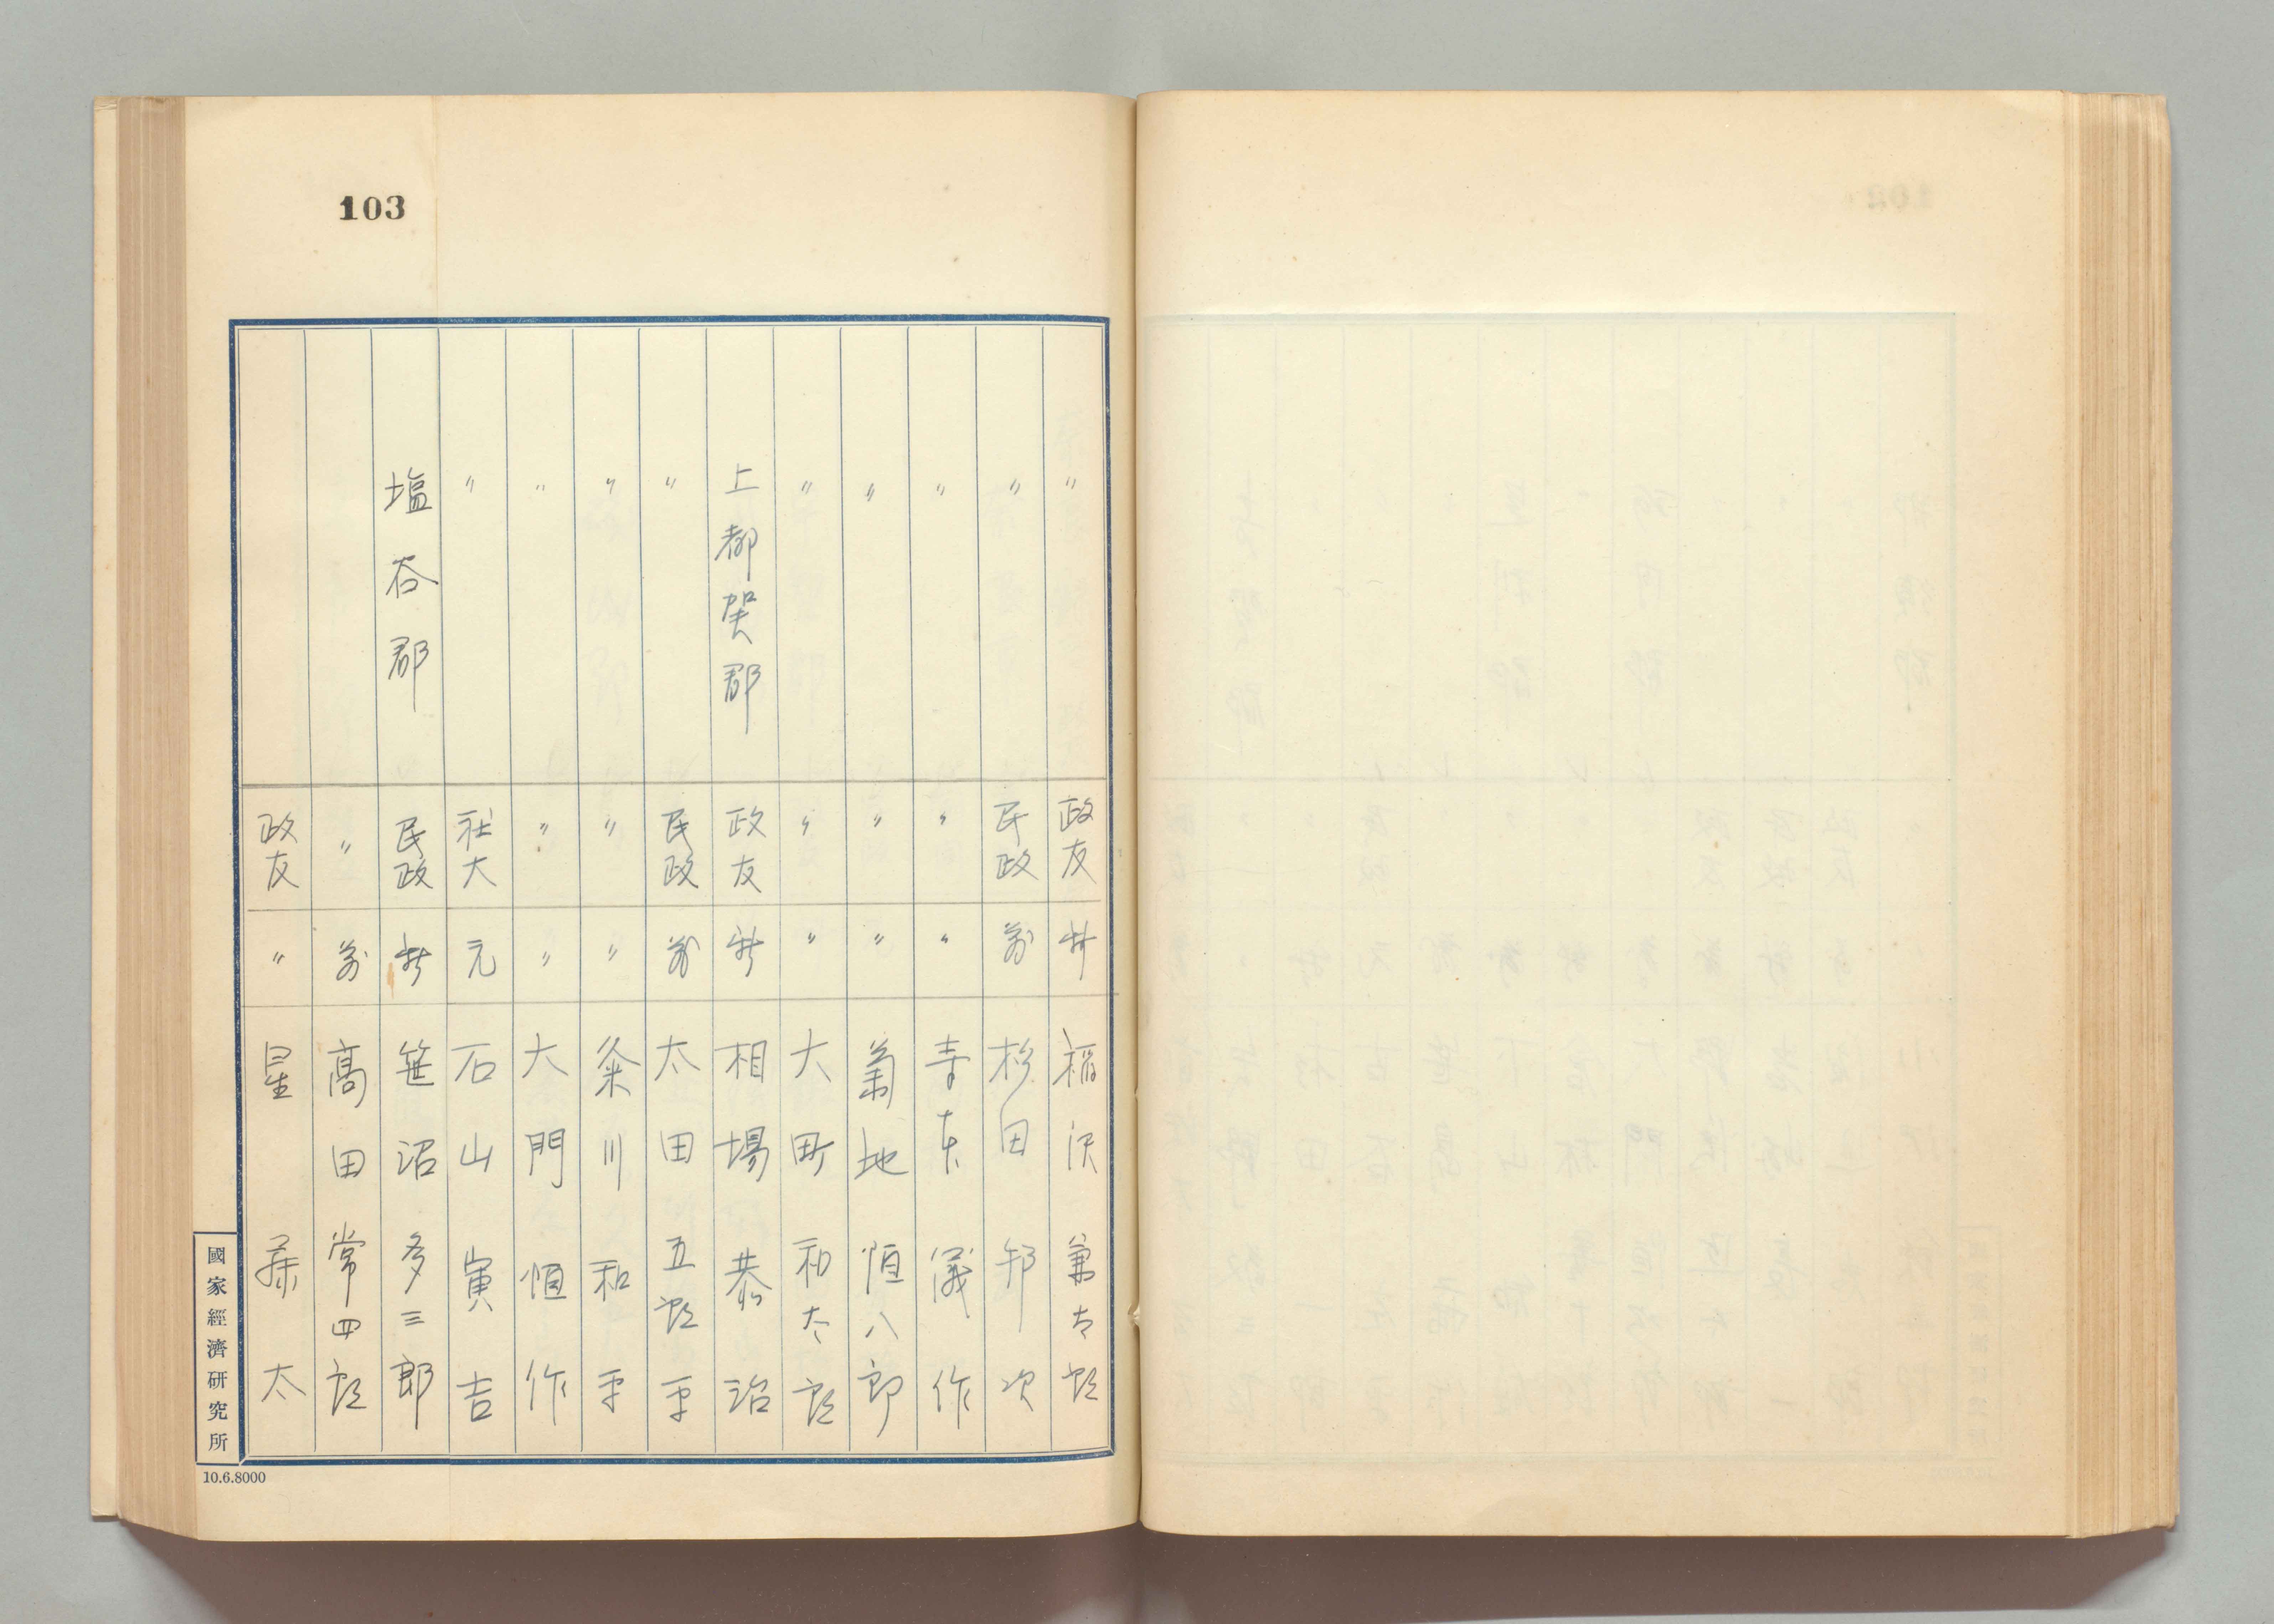 103
〃 政友 新 稲沢兼太郎
〃 民政 前 杉田邦次
〃 〃 〃 東儀作
〃 〃 〃 菊地恒八郎
〃 〃 〃 大町和太郎
上都賀郡 政友 新 相場恭治
〃 民政 前 太田五郎平
〃 〃 〃 粂川和平
〃 〃 〃 大門恒作
〃 社大 元 石山寅吉
塩谷郡 民政 新 笹沼多三郎
〃 前 高田常四郎
政友 〃 星 太
國家經濟研究所
10.6.8000